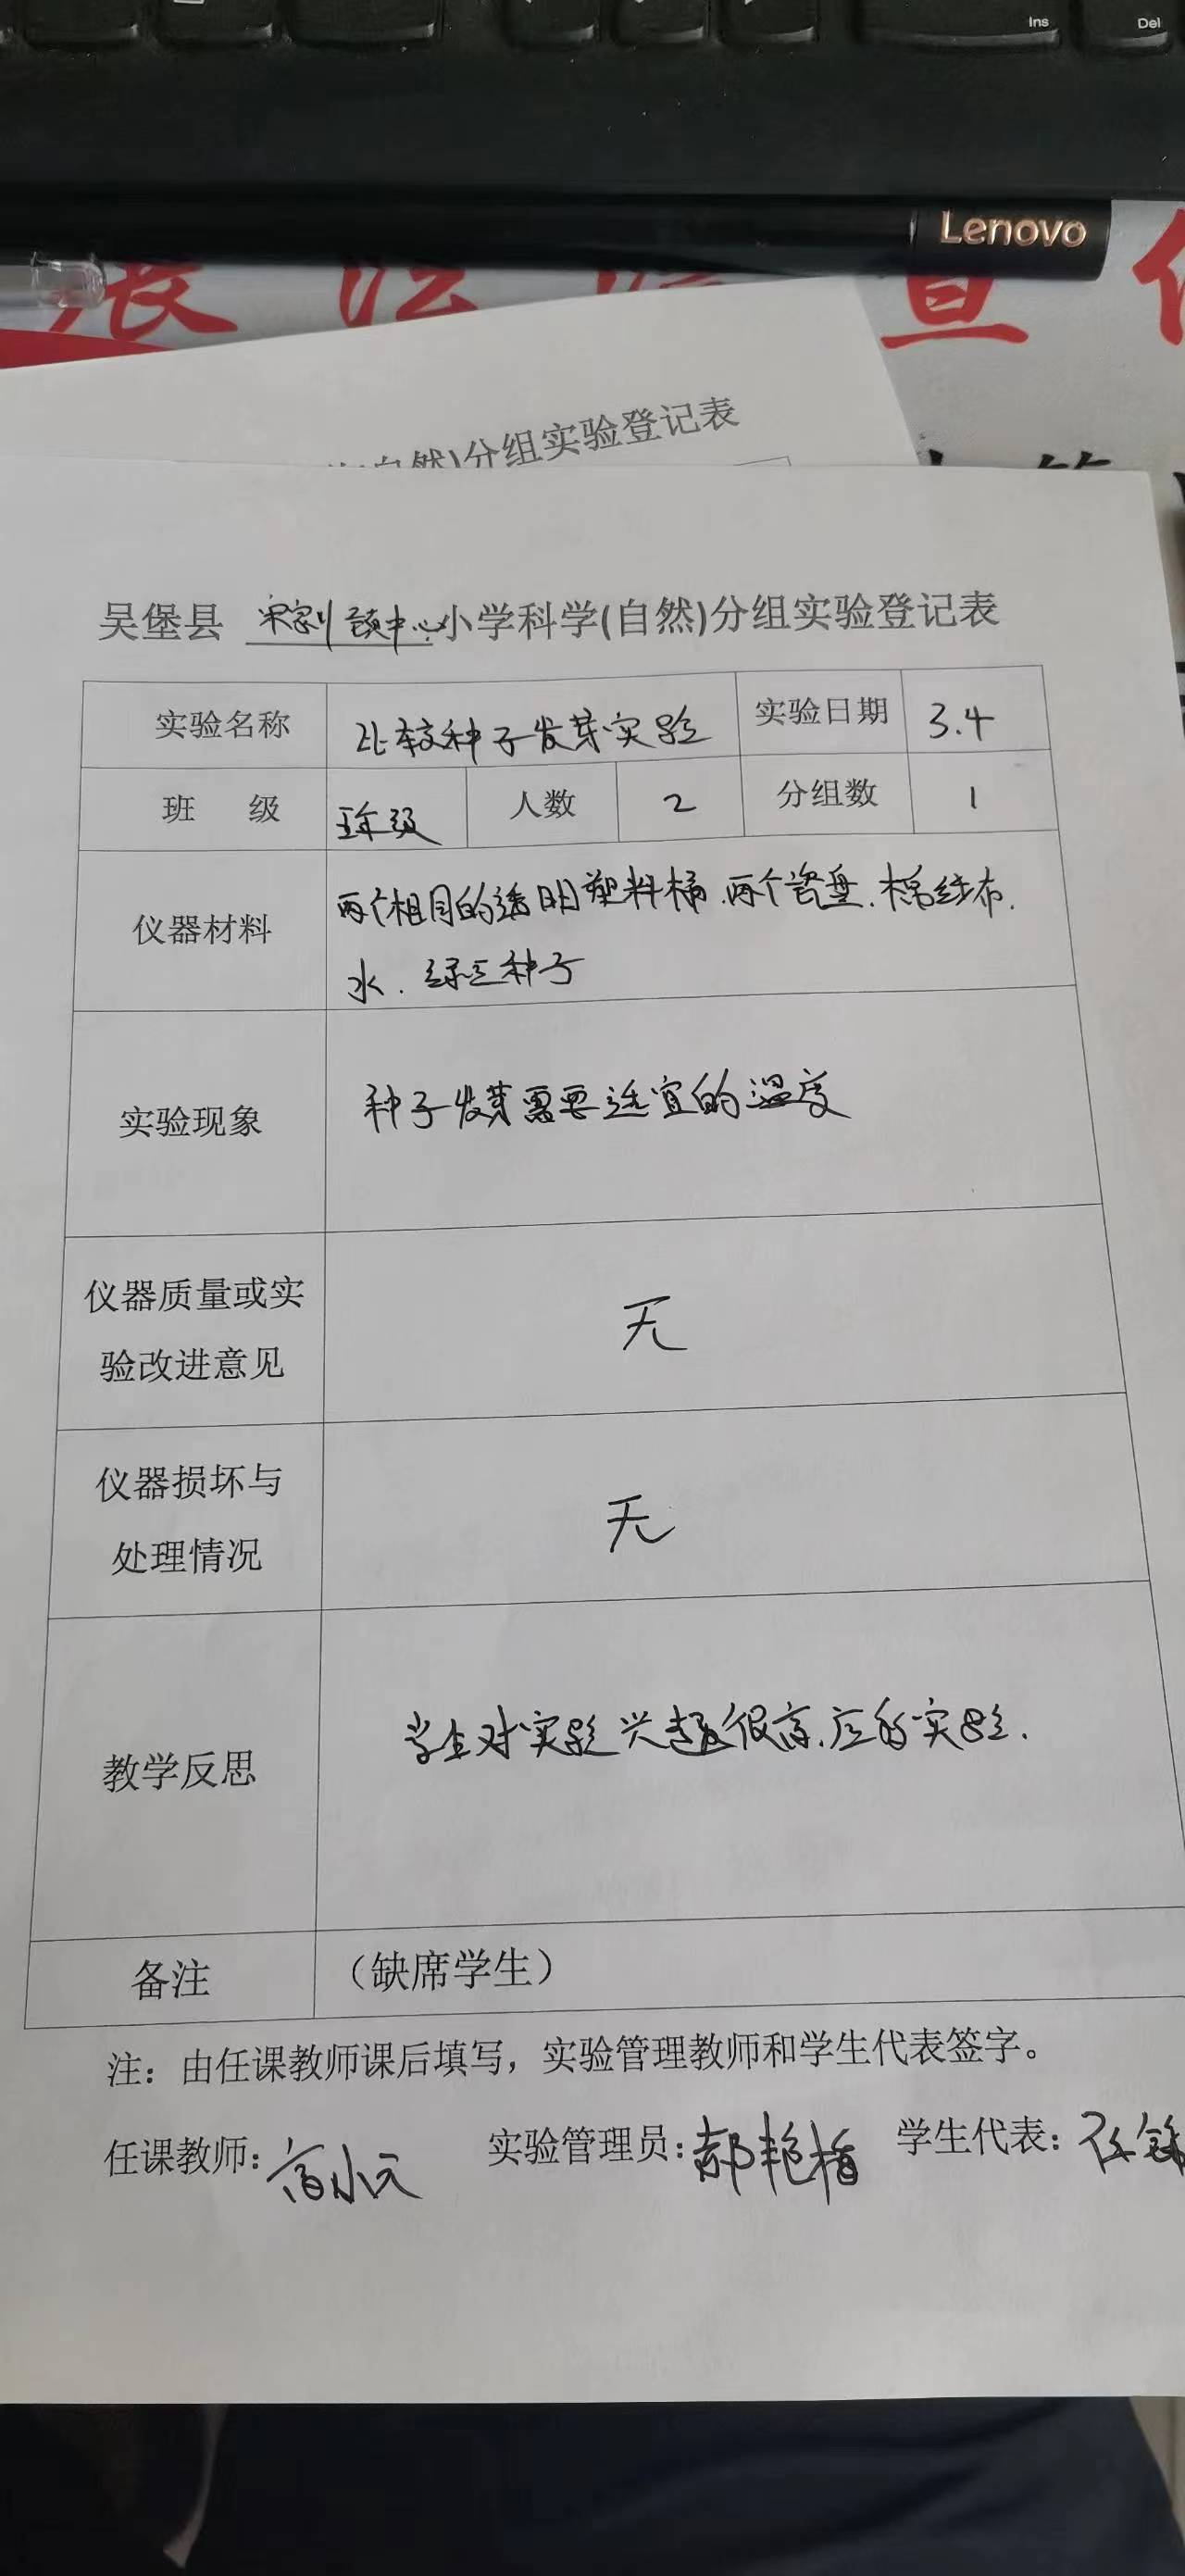 Ins
Del
Lenovo
法 宣
(自然)分组实验登记表
吴堡县 宋家川镇中心小学科学(自然)分组实验登记表
实验名称 比较种子发芽实验 实验日期 3.4
班 级 五年级 人数 2 分组数 1
仪器材料 两个相同的透明塑料桶.两个瓷盘.棉纱布.
水.绿豆种子
实验现象 种子发芽需要适宜的温度
仪器质量或实
验改进意见
无
仪器损坏与
处理情况
无
教学反思 学生对实验兴趣很高.应多实验.
备注 （缺席学生）
注：由任课教师课后填写，实验管理教师和学生代表签字。
任课教师: 实验管理员: 郝艳梅 学生代表: 任